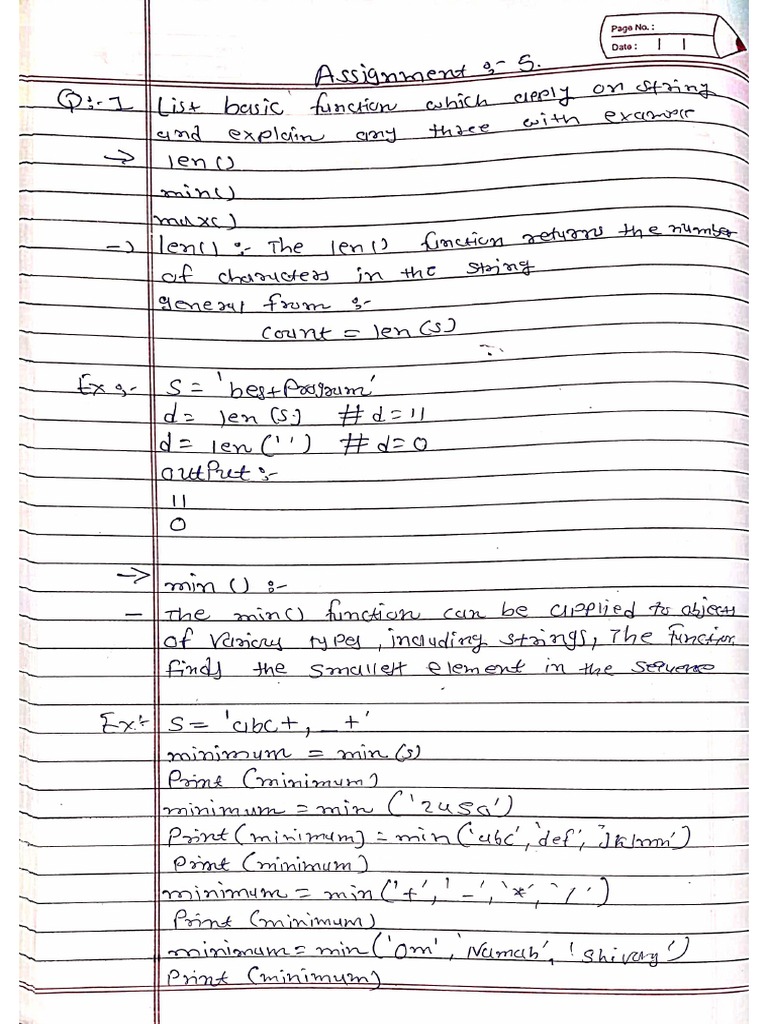 Page No. :
Date : | |
Assignment :- 5.
Q:-1 List basic function which apply on string
and explain any three with example
→ len()
min()
max()
→ len() :- The len() function returns the number
of characters in the string
general from :-
count = len(s)
Ex :- S = 'best Program'
d = len(s) # d=11
d = len('') # d=0
output :-
11
0
→ min() :-
- The min() function can be applied to objects
of various types, including strings, The function
finds the smallest element in the sequence
Ex:- S = 'abc+,_+'
minimum = min(s)
Print (minimum)
minimum = min ('245a')
Print (minimum) = min('abc', 'def', 'Jklmn')
Print (minimum)
minimum = min('+', '-', '*', '/')
Print (minimum)
minimum = min('om', 'Namah', 'Shivay')
Print (minimum)